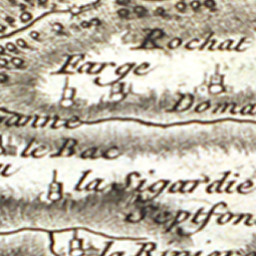 Rochat
Farge
Doma
anne
le Bac
la Sigardie
Septfon
la Riviere